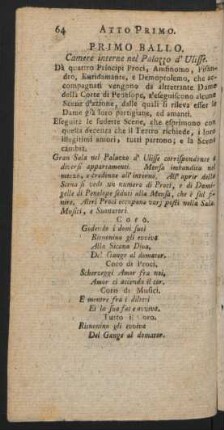 64 ATTO PRIMO.
PRIMO BALLO.
Camere interne nel Palazzo d' Ulisse.
Da quattro Principi Proci, Anfinomo, Pisan-
dro, Euridamante, e Demoptolemo, che ac-
compagnati vengono da altrettante Dame
della Corte di Penelope, s'eseguiscono alcune
Scene d'azione, dalle quali si rileva esser le
Dame già loro partigiane, ed amanti.
Eseguite le suddette Scene, che esprimono con
quella decenza che il Teatro richiede, i loro
illegitimi amori, tutti partono; e la Scena
cambia.
Gran Sala nel Palazzo d' Ulisse corrispondente a
diversi appartamenti. Mensa imbandita nel
mezzo, e credenze all' intorno. All' aprir della
Scena si vede un numero di Proci, e di Dami-
gelle di Penelope seduti alla Mensa, che è sul fi-
nire. Altri Proci occupano varj posti nella Sala.
Musici, e Suonatori.
CORO.
Godendo i doni suoi
Rinnenino gli evviva
Alla Sicana Diva,
Del Gange al domator.
Coro di Proci.
Scherzeggi Amor fra noi,
Amor ci accenda il cor.
Coro di Musici.
E mentre fra i diletti
Ei la sua face avviva.
Tutto il Coro.
Rinnenino gli evviva
Del Gange al domator.